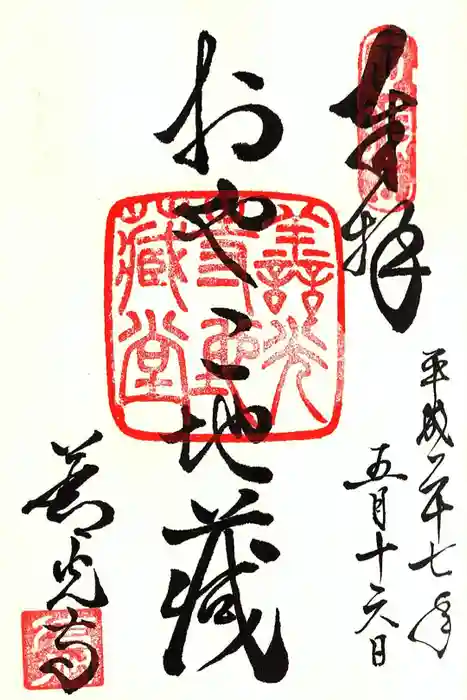 奉拝
平成二十七年
五月十六日
おやこ地蔵
善光
寺地
藏堂
善光寺